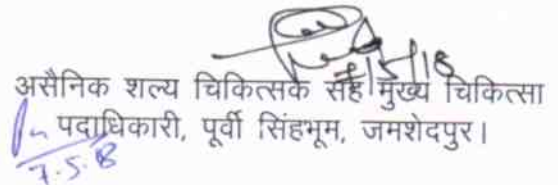 7/5/18
असैनिक शल्य चिकित्सक सह मुख्य चिकित्सा
पदाधिकारी, पूर्वी सिंहभूम, जमशेदपुर।
7.5.18